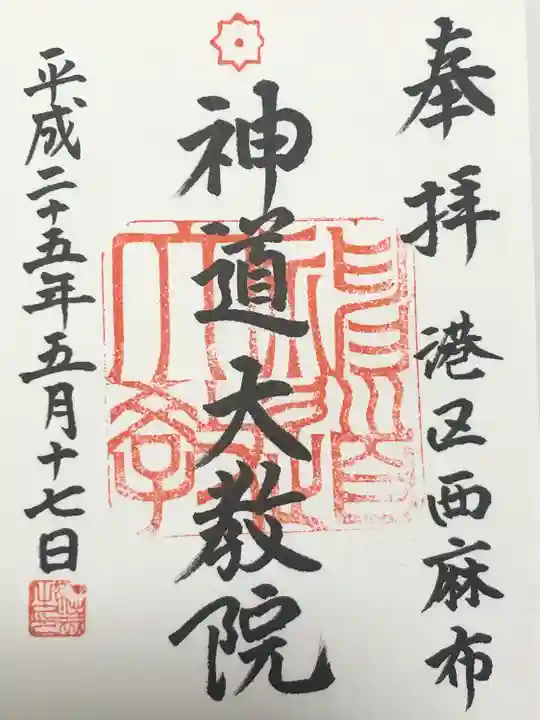 奉拝
港区西麻布
神道大教院
平成二十五年五月十七日